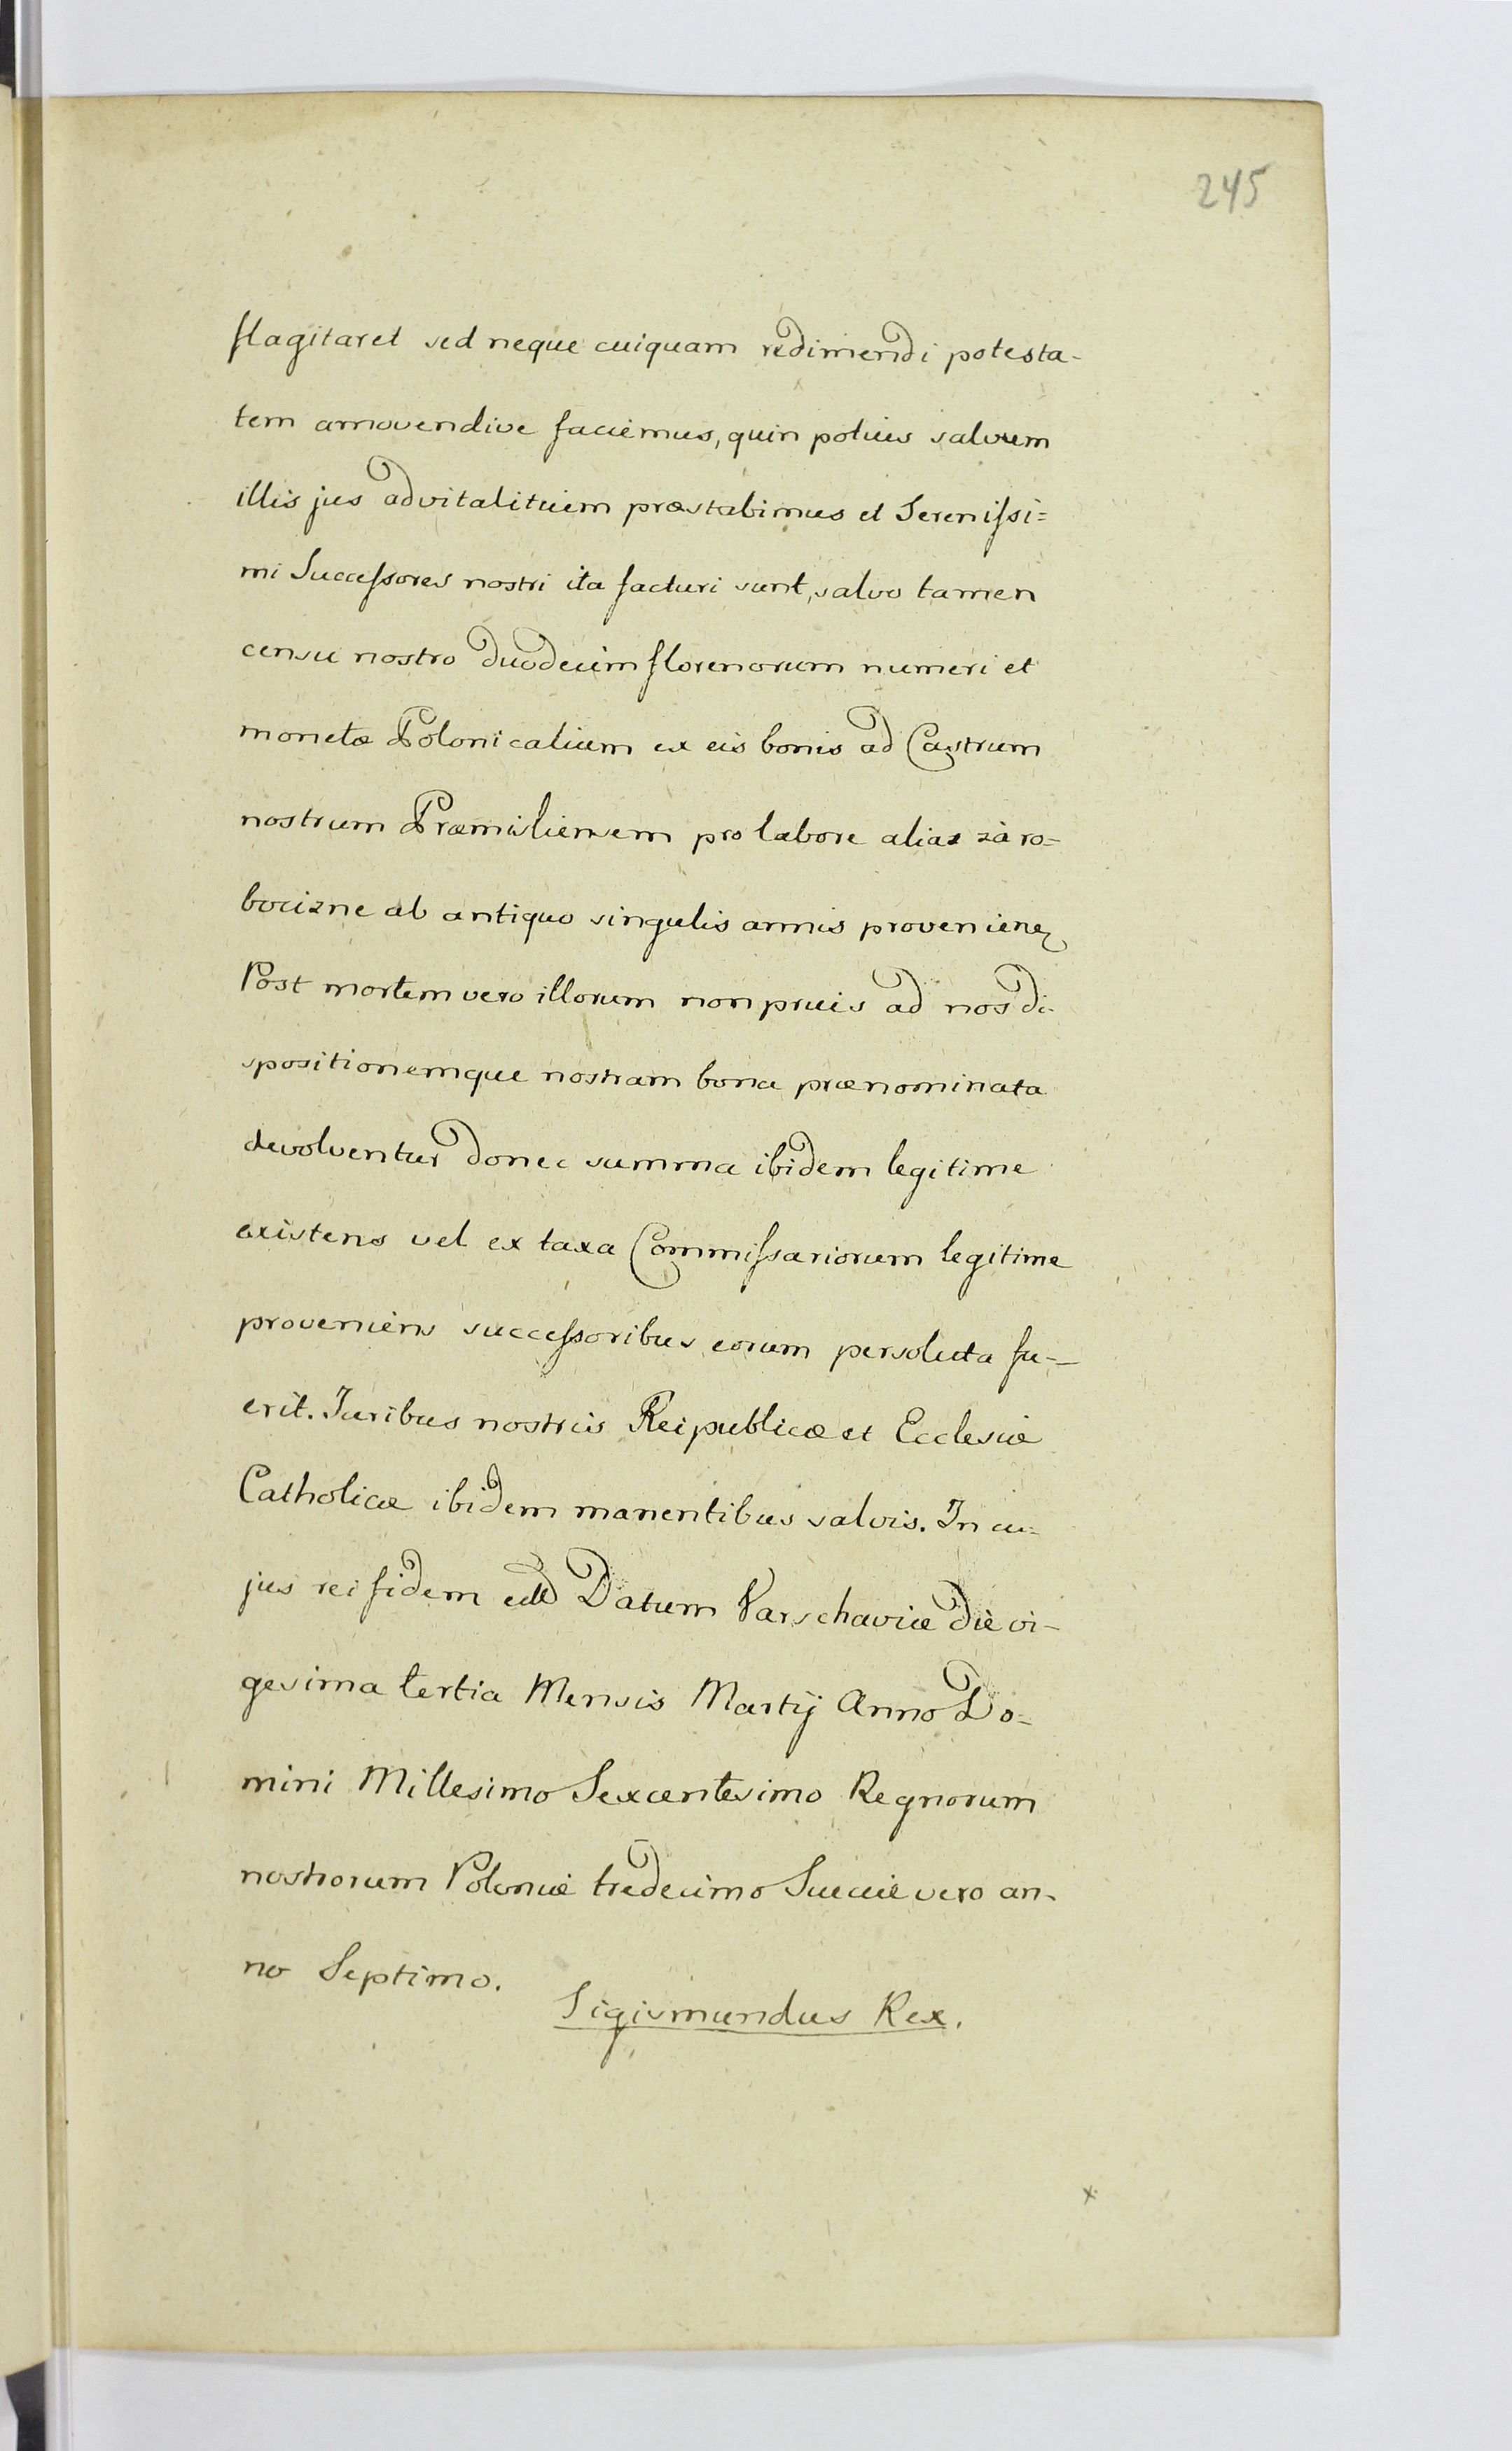 245
flagitaret sed neque cuiquam redimendi potesta-
tem amovendive faciemus, quin potius salvum
illis jus advitalitium præstabimus et Serenissi=
mi Successores nostri ita facturi sunt, salvo tamen
censu nostro duodecim florenorum numeri et
monetæ Polonicalium ex eis bonis ad Castrum
nostrum Præmisliensem pro labore alias za ro=
bocizne ab antiquo singulis annis provenien
Post mortem vero illorum non prius ad nos di-
spositionemque nostram bona prænominata
devolventur donec summa ibidem legitime
existens vel ex taxa Commissariorum legitime
proveniens successoribus eorum persoluta fu-
erit. Juribus nostris Reipublicæ et Ecclesiæ
Catholicæ ibidem manentibus salvis. In cu=
jus rei fidem Datum Varschaviæ die vi-
gesima tertia Mensis Martij Anno Do=
mini Millesimo Sexcentesimo Regnorum
nostrorum Poloniæ tredecimo Sueciæ vero an-
no Septimo.
Sigismundus Rex.
x